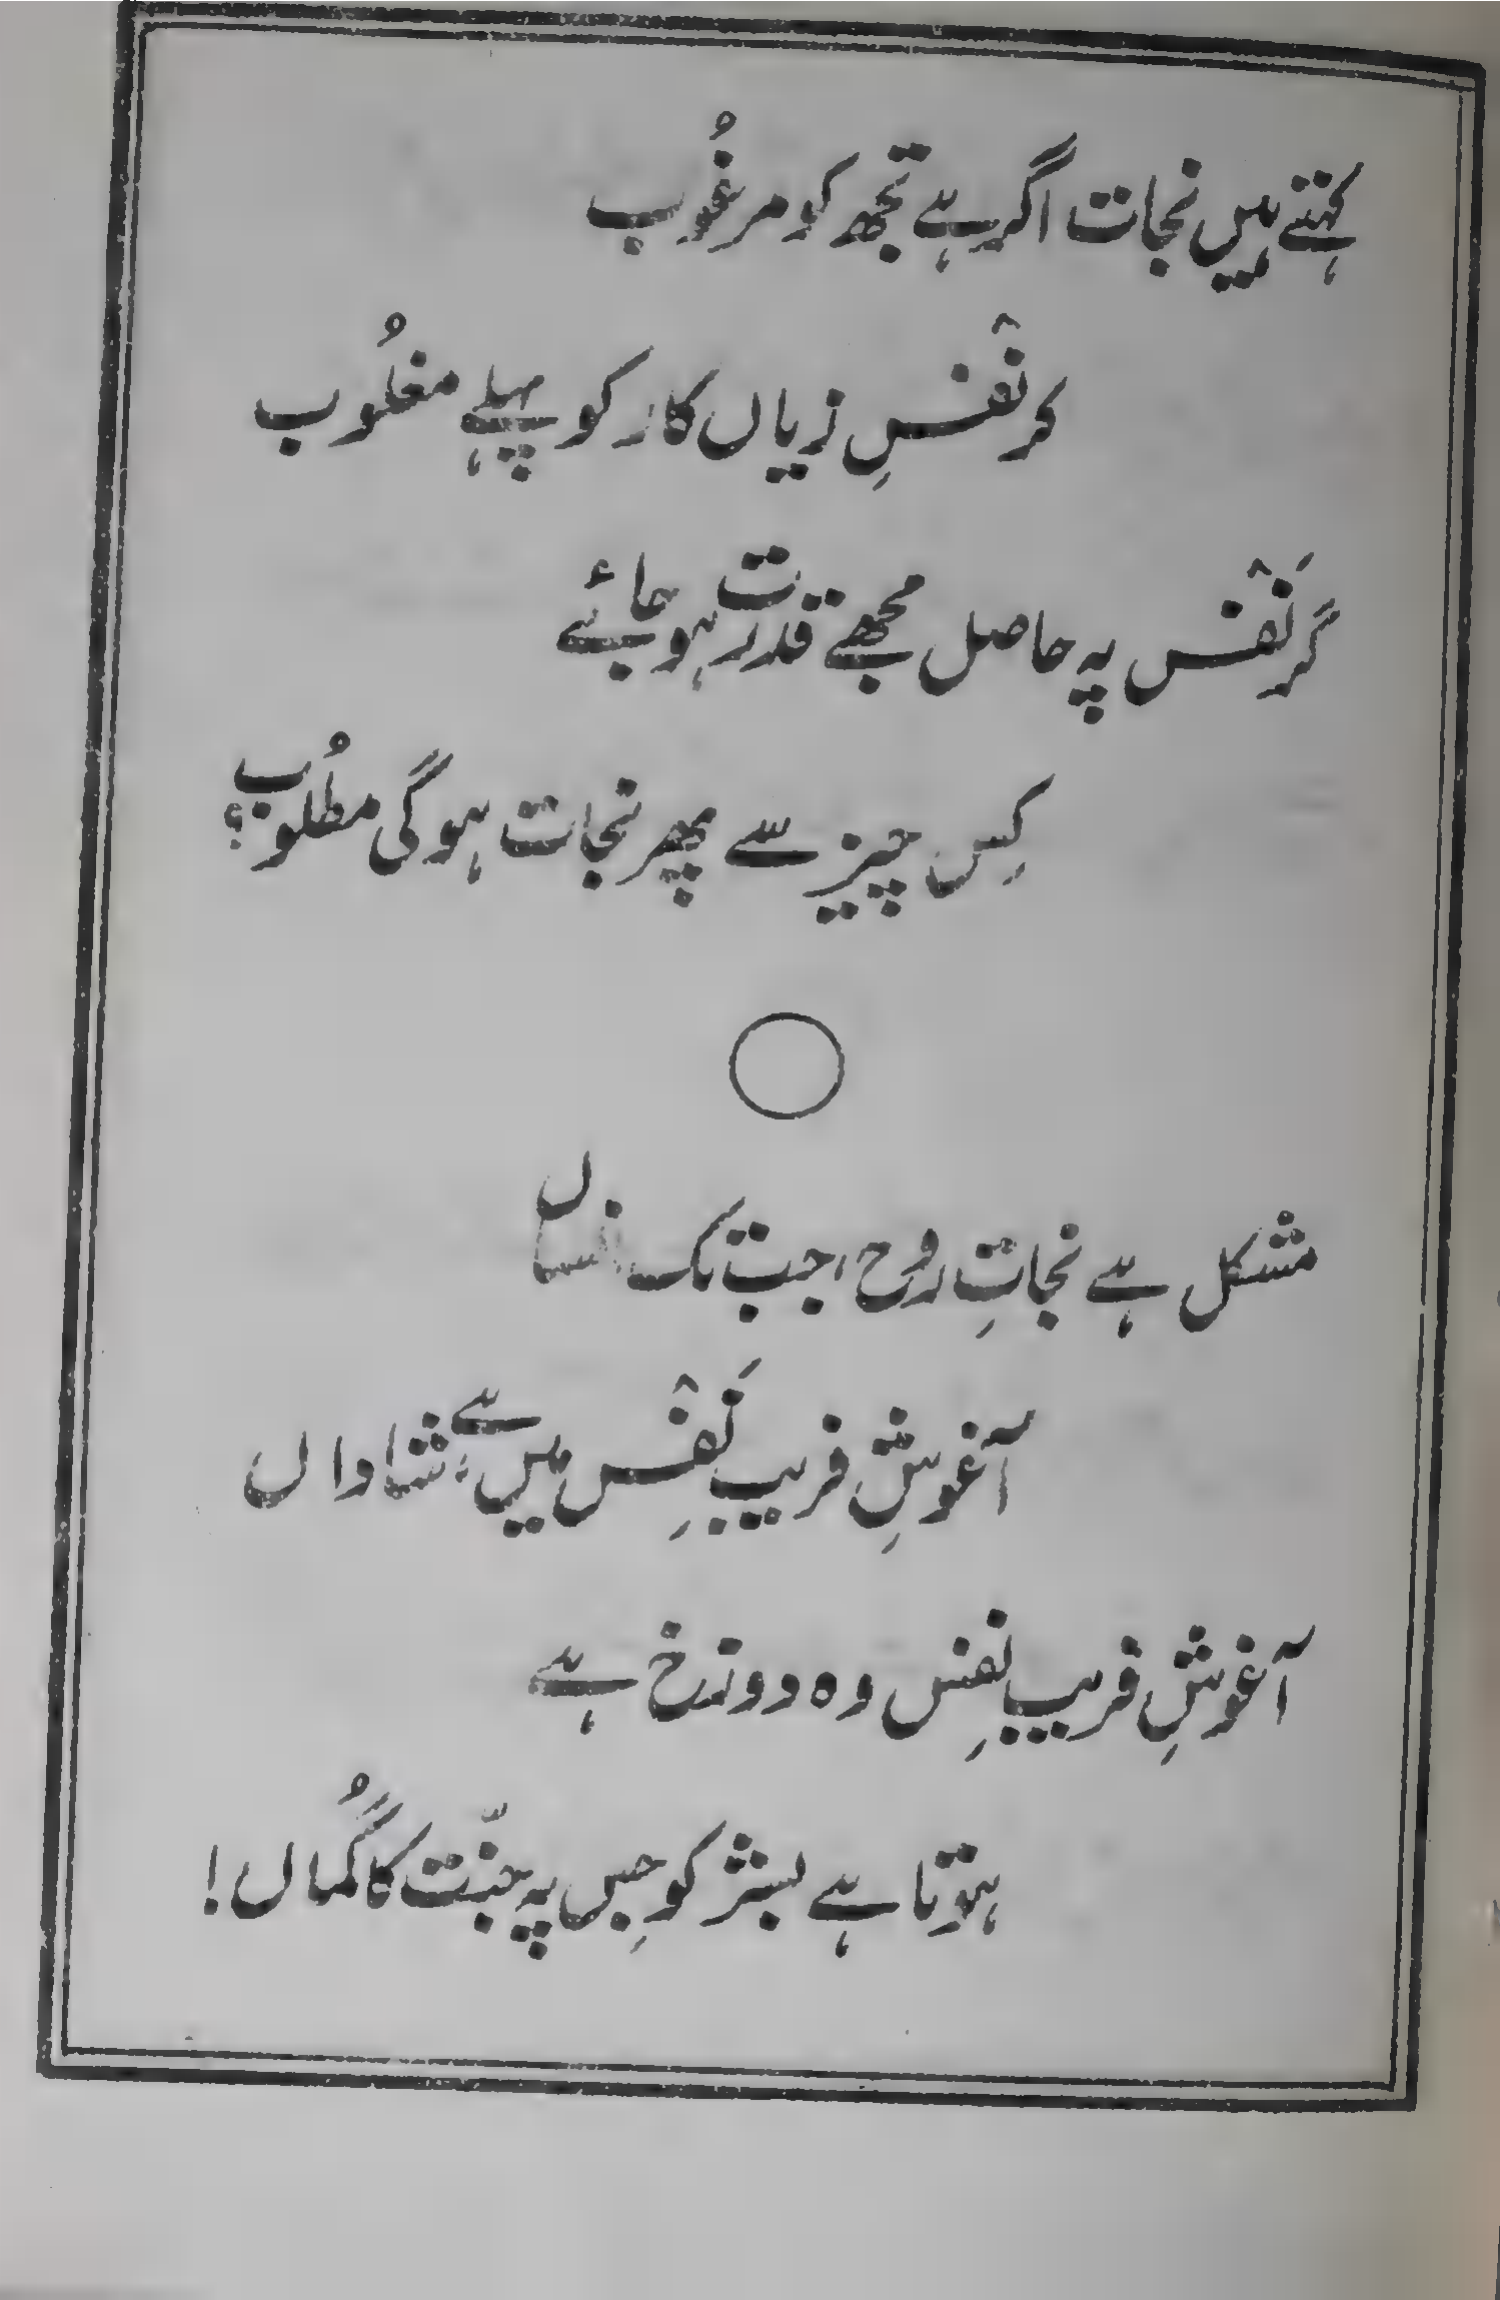 کہتے ہیں نجات اگر ہے تجھ کو مرغُوب
کر نفسِ زیاں کار کو پہلے مغلُوب
گر نَفْس پہ حاصل مجھے قدرت ہو جائے
کِس چیز سے پھر نجات ہوگی مطلُوب؟
مشکل ہے نجاتِ رُوح، جب تک انساں
آغوشِ فریبِ نَفْس میں ہے، شاداں
آغوشِ فریبِ نفس وہ دوزخ ہے
ہوتا ہے بشر کو جِس پہ جنّت کا گُماں!